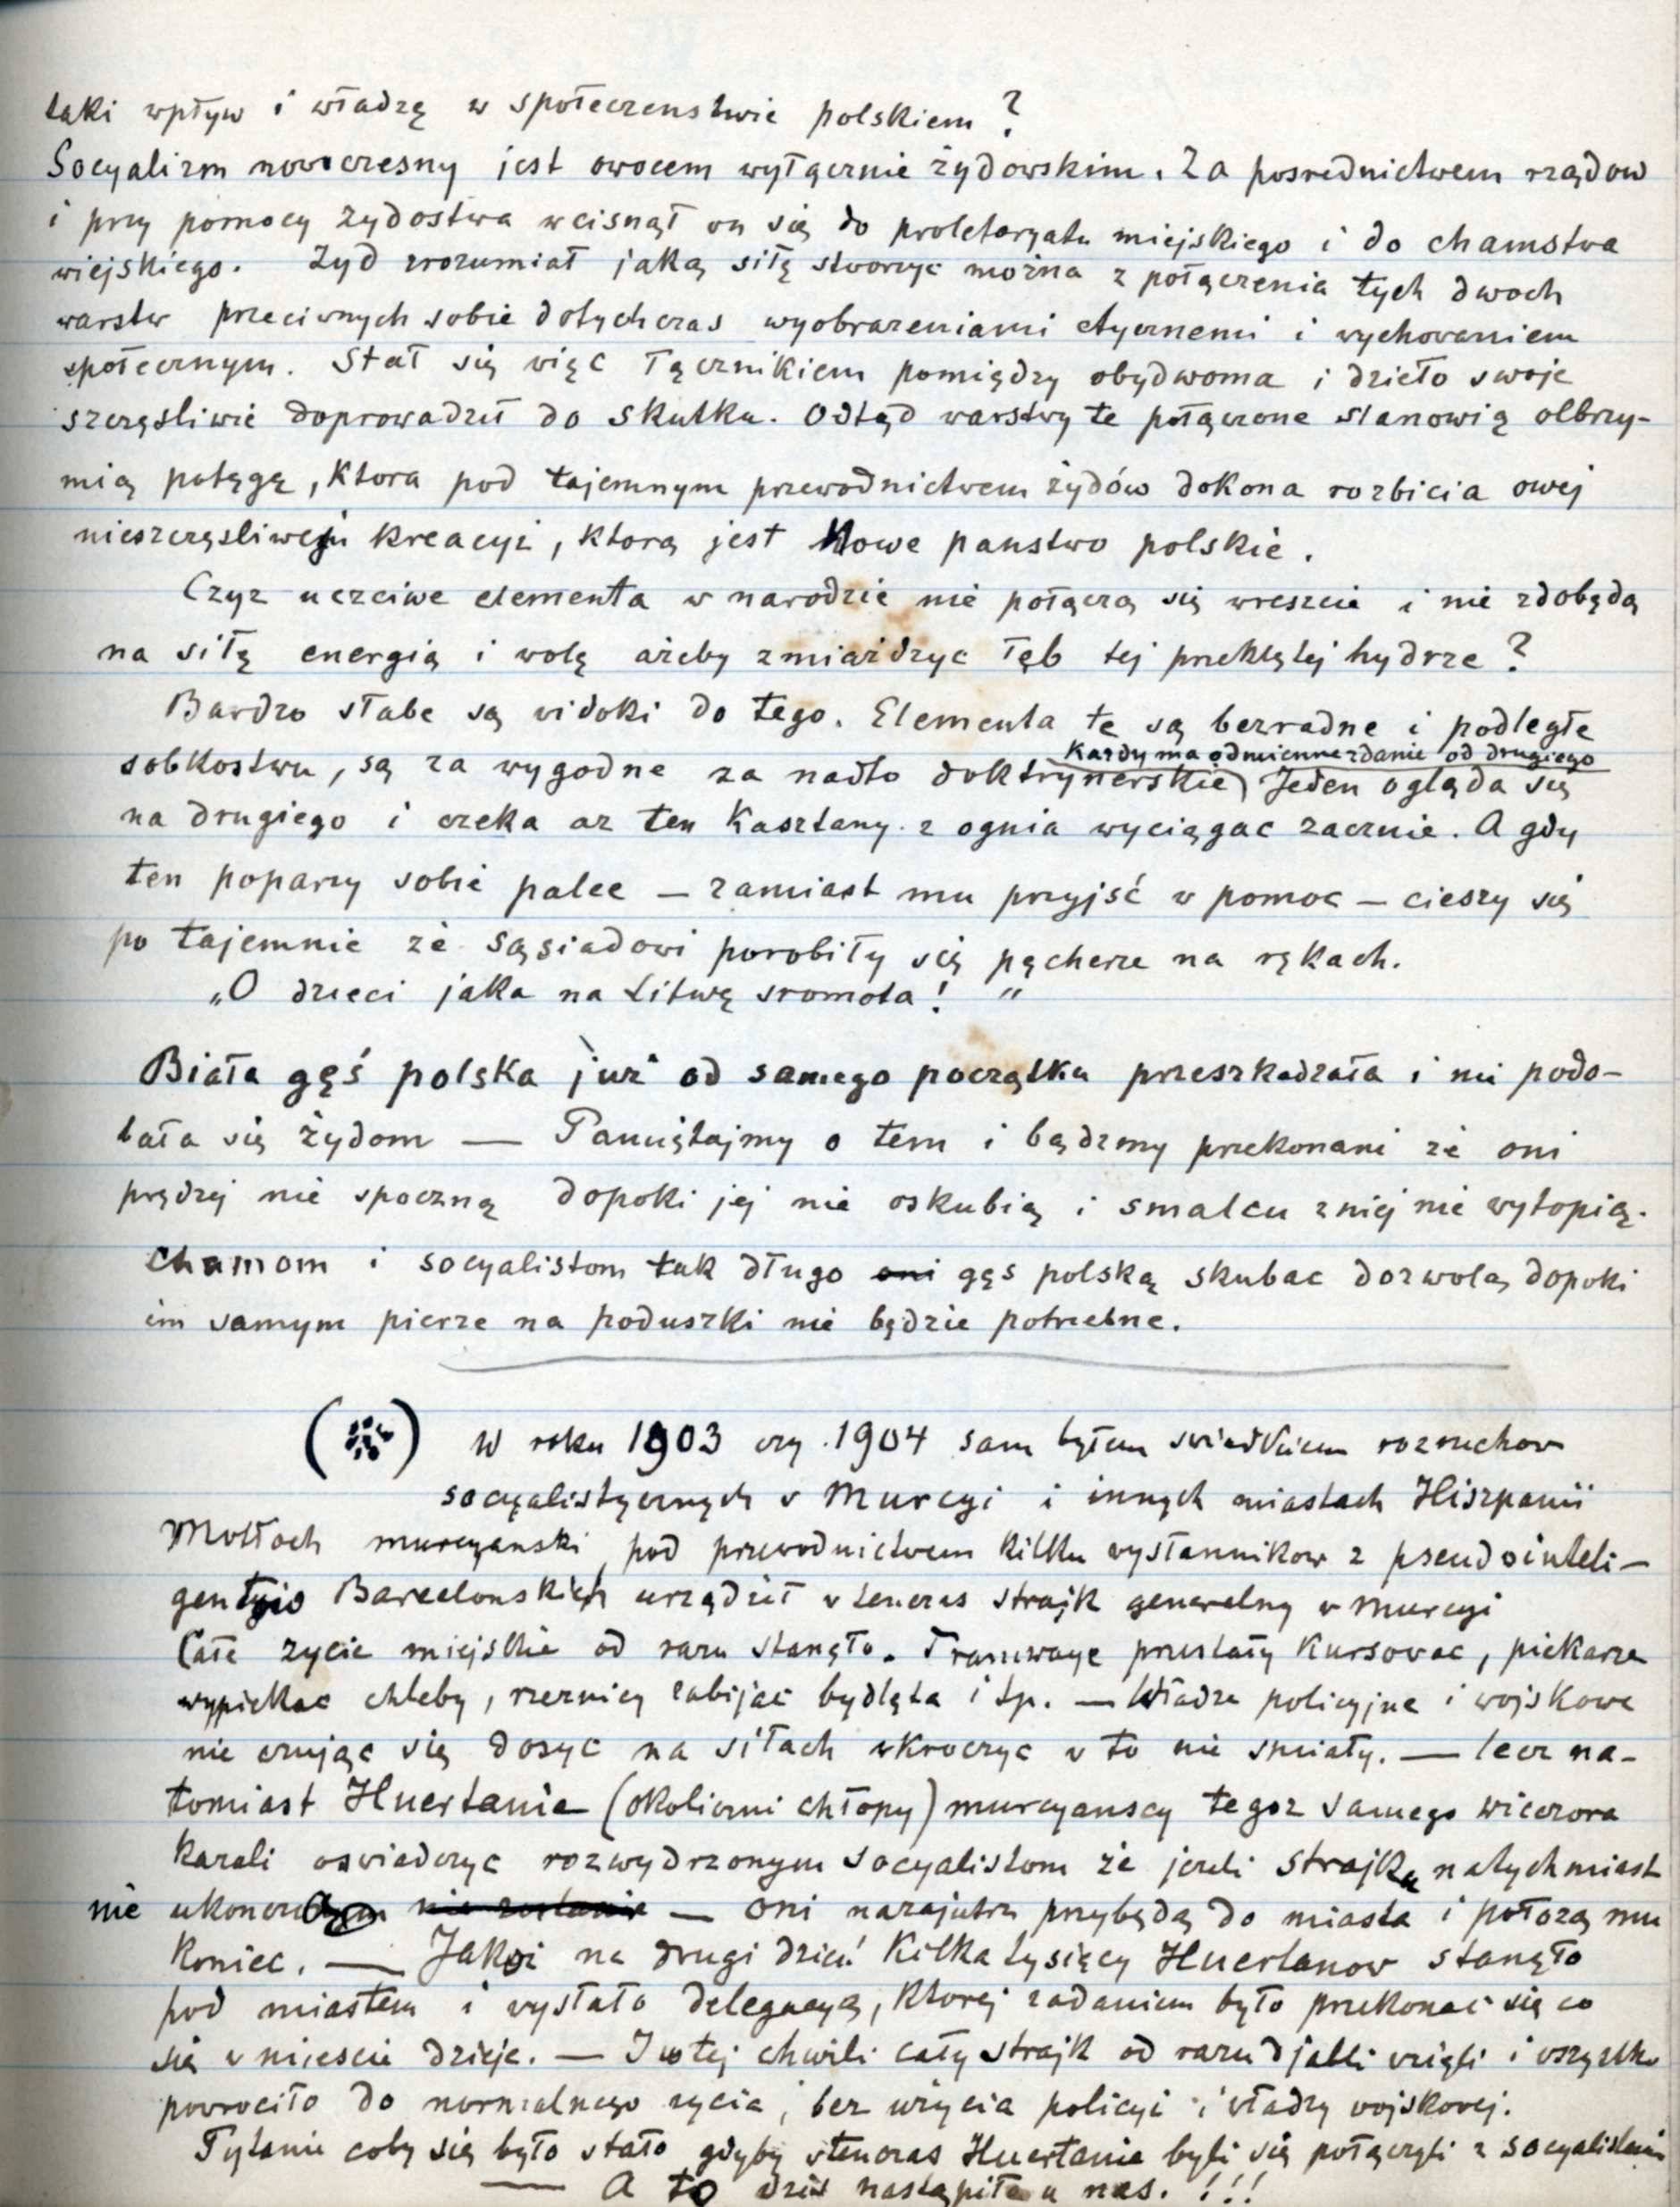 taki wpływ i władzę w społeczenstwie polskiem?
Socyalizm nowoczesny jest owocem wyłącznie żydowskim. Za posrednictwem rządow
i przy pomocy żydostwa wcisnął on się do proletaryatu miejskiego i do chamstwa
wiejskiego. Żyd zrozumiał jaką siłę stworzyc można z połączenia tych dwoch
warstw przeciwnych sobie dotychczas wyobrazeniami etycznemi i wychowaniem
społecznym. Stał się więc łącznikiem pomiędzy obydwoma i dzieło swoje
szczęśliwie doprowadził do skutku. Odtąd warstwy te połączone stanowią olbrzy-
mią potęgę, ktora pod tajemnym przewodnictwem żydów dokona rozbicia owej
nieszczęsliwej kreacyi, ktorą jest Nowe panstwo polskie.
Czyz uczciwe elementa w narodzie nie połączą się wreszcie i nie zdobędą
na siłę energią i wolę ażeby zmiażdzyc łęb tej przeklętej hydrze?
Bardzo słabe są widoki do tego. Elementa te są bezradne i podległe
Kazdy ma odmienne zdanie od drugiego
sobkostwu, są za wygodne za nadto doktrynerskie) Jeden ogląda się
na drugiego i czeka az ten Kasztany z ognia wyciągac zacznie. A gdy
ten poparzy sobie palce — zamiast mu przyjść w pomoc — cieszy się
po tajemnie że sąsiadowi porobiły się pęcherze na rękach.
„O dzieci jaka na Litwę sromota! "
Biała gęś polska już od samego początku przeszkadzała i nie podo-
bała się żydom — Pamiętajmy o tem i bądzmy przekonani że oni
prędzej nie spoczną dopoki jej nie oskubią i smalcu z niej nie wytopią.
Chamom i socyalistom tak długo oni gęs polską skubac dozwolą dopoki
im samym pierze na poduszki nie będzie potrzebne.
(※) W roku 1903 czy 1904 sam byłem swiadkiem rozruchow
socyalistycznych w Murcyi i innych miastach Hiszpanii
Motłoch murcyanski pod przewodnictwem kilku wysłannikow z pseudointeli-
Barcelonskich urządził wtenczas strajk generalny w Murcyi
Całe zycie miejskie od razu stanęło. Tramwaye przestały Kursowac, piekarze
wypiekac chleby, rzeznicy zabijac bydlęta i tp. — Władze policyjne i wojskowe
nie czując się dosyc na siłach wkroczyc w to nie smiały. — lecz na-
tomiast Huertania (okoliczni chłopy) murcyanscy tegoz samego wieczora
kazali oswiadczyc rozwydrzonym socyalistom że jezeli strajku natychmiast
nie — oni nazajutrz przybędą do miasta i położą mu
koniec. — Jakoż na drugi dzień Kilka tysięcy Huertanow stanęło
pod miastem i wysłało delegacyą, Ktorej zadaniem było przekonac się co
się w miescie dzieje. — I w tej chwili cały strajk od razu djabli wzięli i wszystko
powrociło do normalnego zycia, bez użycia policyi i władzy wojskowej.
Pytanie coby się było stało gdyby wtenczas Huertanie byli się połączyli z socyalistami
— A to dzis nastąpiło u nas. !!!